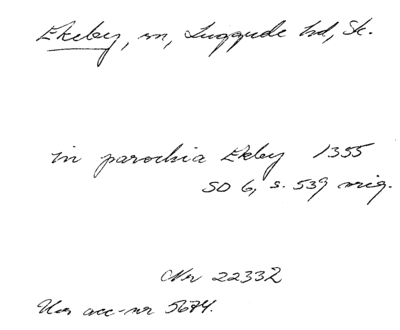 Ekeby, sn, Luggude hd, Sk.
in parochia Ekby 1355
SD 6, s. 539 mig.
Nr 22332
Uas acc-nr 5674.